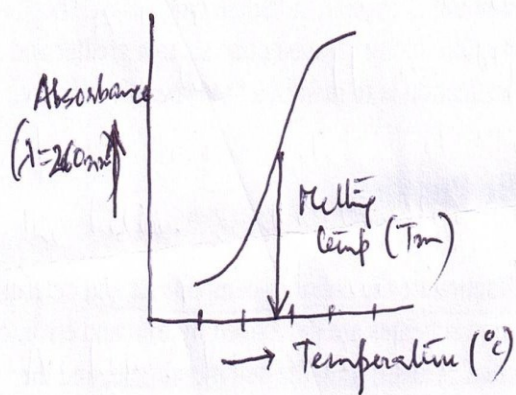 Absorbance
(λ=260nm)
Melting
temp (Tm)
→ Temperature (°C)